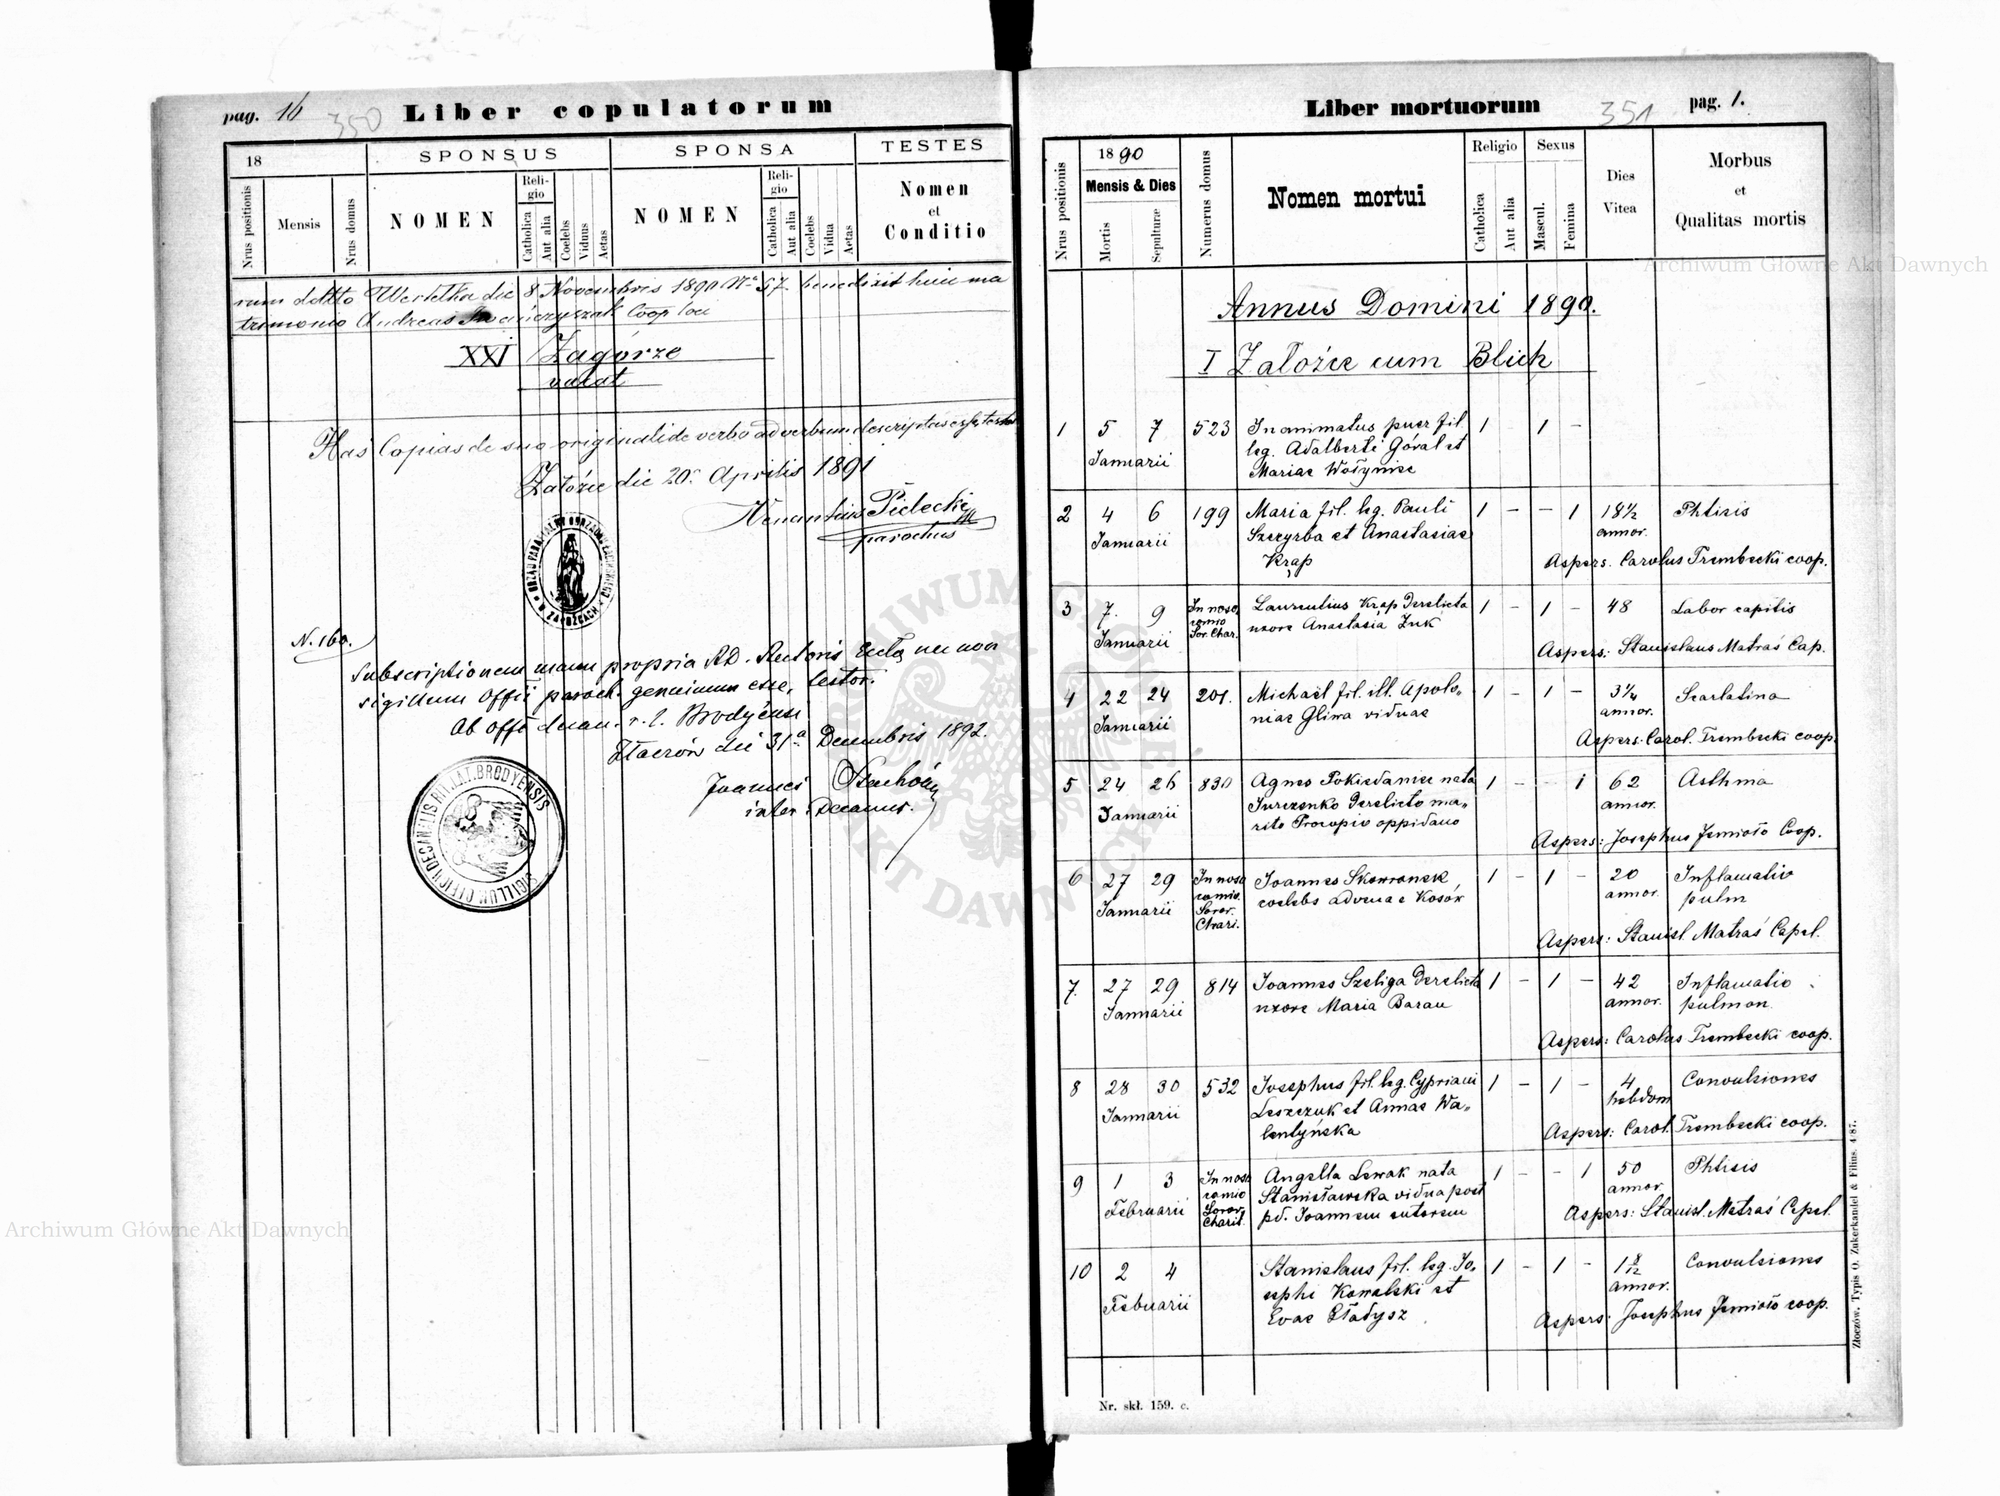 pag. 16 350 Liber copulatorum
18
SPONSUS
SPONSA
TESTES
Nrus positionis
Mensis
Nrus domus
NOMEN
Religio
Catholica
Aut alia
Coelebs
Viduus
Aetas
NOMEN
Religio
Catholica
Aut alia
Coelebs
Vidua
Aetas
Nomen
et
Conditio
rum detto Wertelka die 8 Novembris 1890 N° 57 benedixit huic ma
trimonio Andreas Coop loci
XXI Zagórze
vacat
Has Copias de suo originali de verbo ad verbum descriptas esse testor
Załoźce die 20 Aprilis 1891
Venantius Pilecki
parochus
URZĄD PARAFIALNY OBRZĄDKU ŁACIŃSKIEGO W ZAŁOŹCACH
N. 160.
Subscriptionem manu propria RD. Rectoris Eccła nec non
sigillum Offii paroch. genuinum esse, testor.
Ab offo decan. r. l. Brodyensi
die 31a Decembris 1892.
Joannes
inter. Decanus.
SIGILLUM OFFICII DECANALIS RIT. LAT. BRODYENSIS
Liber mortuorum 351 pag. 1.
Nrus positionis
1890
Mensis & Dies
Mortis
Sepulturæ
Numerus domus
Nomen mortui
Religio
Catholica
Aut alia
Sexus
Mascul.
Femina
Dies
Vitea
Morbus
et
Qualitas mortis
Annus Domini 1890.
I Załoźce cum Blich
1 5 7 523 Inanimatus puer fil. 1 - 1 -
Januarii leg. Adalberti Góral et
Mariae Wołyniec
2 4 6 199 Maria fil. leg. Pauli 1 - - 1 18½ Phtisis
Januarii Szczyrba et Anastasiae annor.
Krąp Aspers. Carolus Trembecki coop.
3 7. 9 In noso- Laurentius Krąp derelicta 1 - 1 - 48 Labor capitis
Januarii comio uxore Anastasia Żuk
Sor. Char. Aspers: Stanislaus Matraś Cap.
4 22 24 201. Michaël fil. ill. Apolo- 1 - 1 - 3¼ Scarlatina
Januarii niae Gliwa viduae annor.
Aspers: Carol. Trembecki coop.
5 24 26 830 Agnes Pokiedaniec nata 1 - - 1 62 Asthma
Januarii Jurczenko derelicto ma- annor.
rito Procopio oppidano Aspers: Josephus Jemioło Coop.
6 27 29 In noso Joannes Skowronek 1 - 1 - 20 Inflamatio
Januarii comio. coelebs advena e Kosów annor. pulm
Soror.
Chari. Aspers: Stanisl. Matraś Capel.
7. 27 29 814 Joannes Szeliga derelicta 1 - 1 - 42 Inflamatio
Januarii uxore Maria Baran annor. pulmon.
Aspers: Carolus Trembecki coop.
8 28 30 532 Josephus fil. leg. Cypriani 1 - 1 - 4 Convulsiones
Januarii Leszczuk et Annae Wa- hebdom
lentyńska Aspers: Carol. Trembecki coop.
9 1 3 In noso Angella Lewak nata 1 - - 1 50 Phtisis
Februarii comio Stanisławska vidua post annor.
Soror. pd. Joannem sutorem
Charit. Aspers: Stanisl. Matraś Capel.
10 2 4 Stanislaus fil. leg. Jo- 1 - 1 - 1 8/12 Convulsiones
Februarii sephi Kowalski et annor.
Evae Gładysz Aspers: Josephus Jemioło coop.
Nr. skł. 159. c.
Złoczów. Typis O. Zukerkandel & Filius. 4/87.
Archiwum Główne Akt Dawnych
Archiwum Główne Akt Dawnych
ARCHIWUM GŁÓWNE AKT DAWNYCH